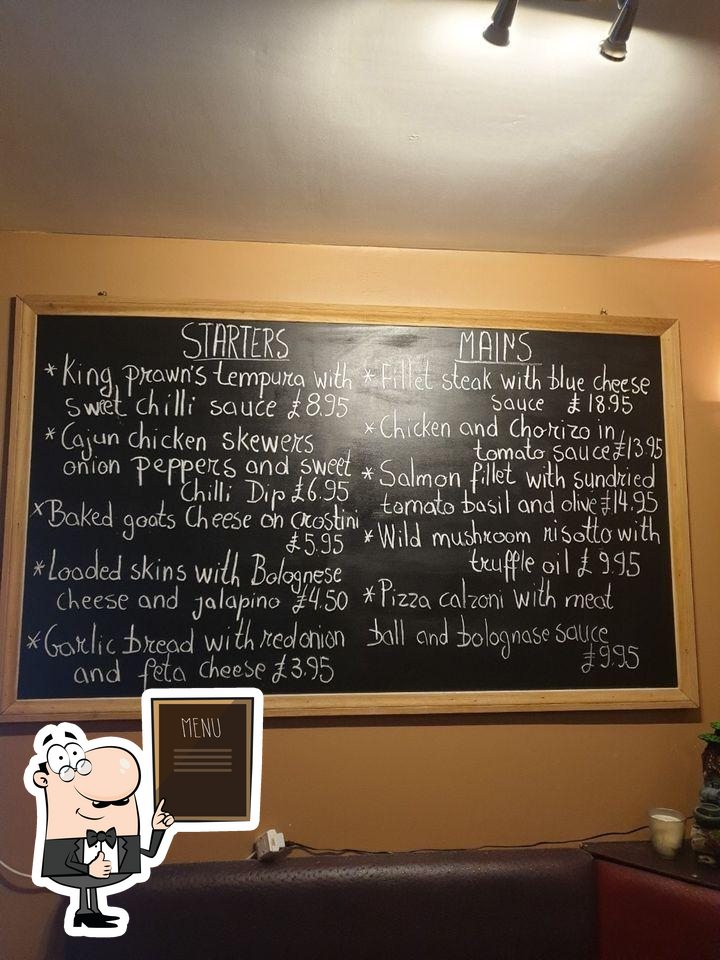 STARTERS
*King prawn's tempura with
sweet chilli sauce £8.95
*Cajun chicken skewers
onion peppers and sweet
Chilli Dip £6.95
*Baked goats Cheese on crostini
£5.95
*Loaded skins with Bolognese
cheese and jalapino £4.50
*Garlic bread with red onion
and feta cheese £3.95
MAINS
*Fillet steak with blue cheese
sauce £18.95
*Chicken and Chorizo in
tomato sauce £13.95
*Salmon fillet with sundried
tomato basil and olive £14.95
*Wild mushroom risotto with
truffle oil £9.95
*Pizza calzoni with meat
ball and bolognase sauce
£9.95
MENU